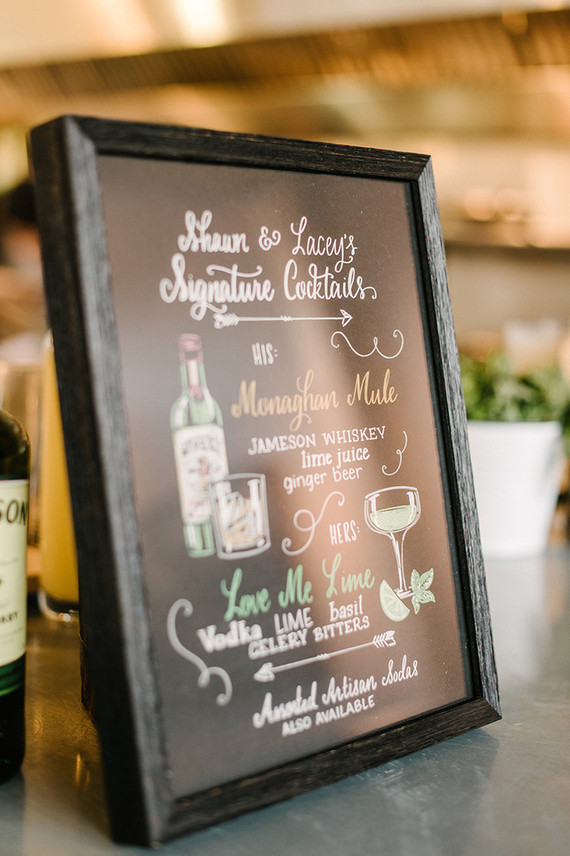 Shaun & Lacey's
Signature Cocktails
HIS:
Monaghan Mule
JAMESON WHISKEY
lime juice
ginger beer
HERS:
Love Me Lime
Vodka LIME basil
CELERY BITTERS
Assorted Artisan Sodas
ALSO AVAILABLE
SON